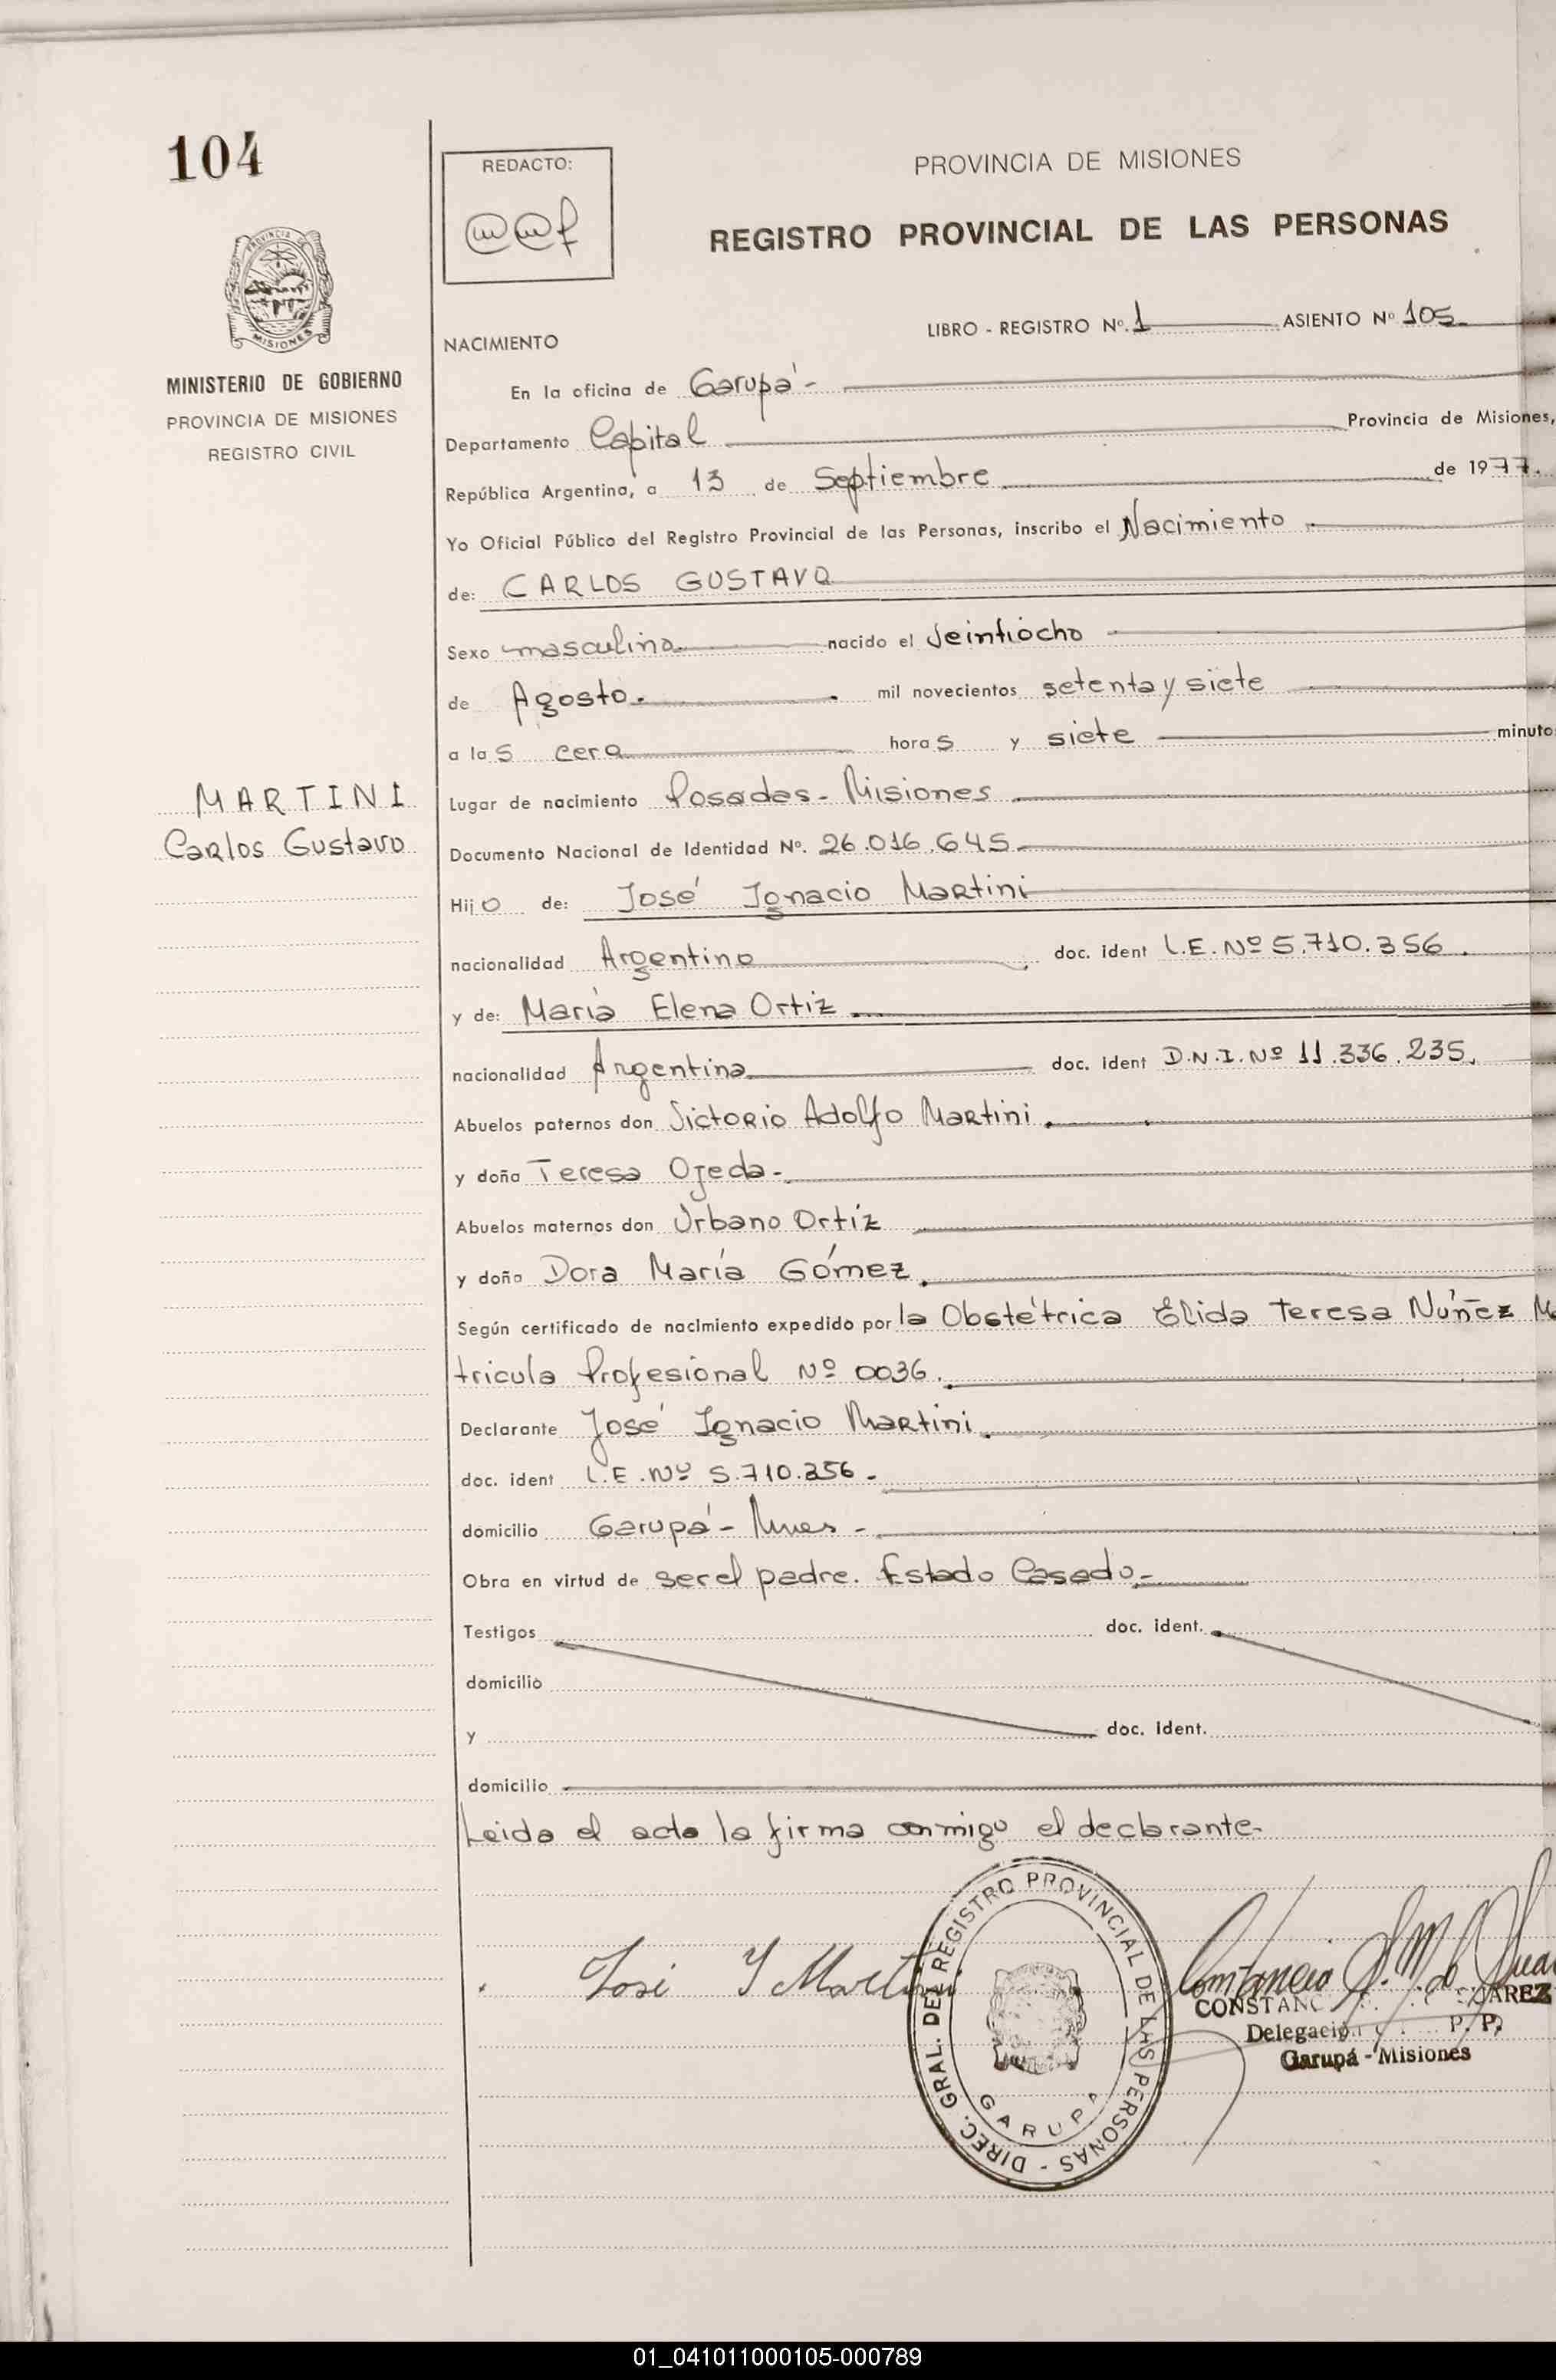 104
REDACTO:
PROVINCIA DE MISIONES
REGISTRO PROVINCIAL DE LAS PERSONAS
LIBRO - REGISTRO Nº. 1 ASIENTO Nº 105
NACIMIENTO
MISIONES
MINISTERIO DE GOBIERNO
PROVINCIA DE MISIONES
REGISTRO CIVIL
En la oficina de Garupá -
Departamento Capital Provincia de Misiones,
República Argentina, a 13 de Septiembre de 1977.
Yo Oficial Público del Registro Provincial de las Personas, inscribo el Nacimiento
de: CARLOS GUSTAVO
Sexo masculino nacido el Veintiocho
de Agosto. mil novecientos setenta y siete
a las cero horas y siete minuto
MARTINI
Carlos Gustavo
Lugar de nacimiento Posadas - Misiones
Documento Nacional de Identidad Nº. 26.016.645
Hijo de: José Ignacio Martini
nacionalidad Argentino doc. ident L.E. Nº 5.710.356.
y de: María Elena Ortiz
nacionalidad Argentina doc. ident D.N.I. Nº 11.336.235.
Abuelos paternos don Victorio Adolfo Martini.
y doña Teresa Ojeda -
Abuelos maternos don Urbano Ortiz
y doña Dora María Gómez.
Según certificado de nacimiento expedido por la Obstétrica Elida Teresa Núñez Ma
tricula Profesional Nº 0036.
Declarante José Ignacio Martini.
doc. ident L.E. Nº 5.710.356 -
domicilio Garupá - Mnes -
Obra en virtud de ser el padre. Estado Casado. -
Testigos doc. ident.
domicilio
y doc. ident.
domicilio
Leida el acta la firma conmigo el declarante -
José I Martini
DIREC. GRAL. DEL REGISTRO PROVINCIAL DE LAS PERSONAS -
GARUPA
Delegación
Garupá - Misiones
01_041011000105-000789